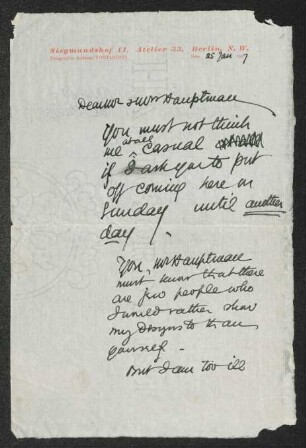 Siegmundshof 11, Atelier 33, Berlin, N. W.
25 Jan
Dear Mr & Mrs Hauptmann
You must not think
me at all casual
if I ask you to put
off coming here on
Sunday until another
day.
You, Mr Hauptmann
must know that there
are few people who
I would rather show
my Designs to than
yourself -
But I am too ill